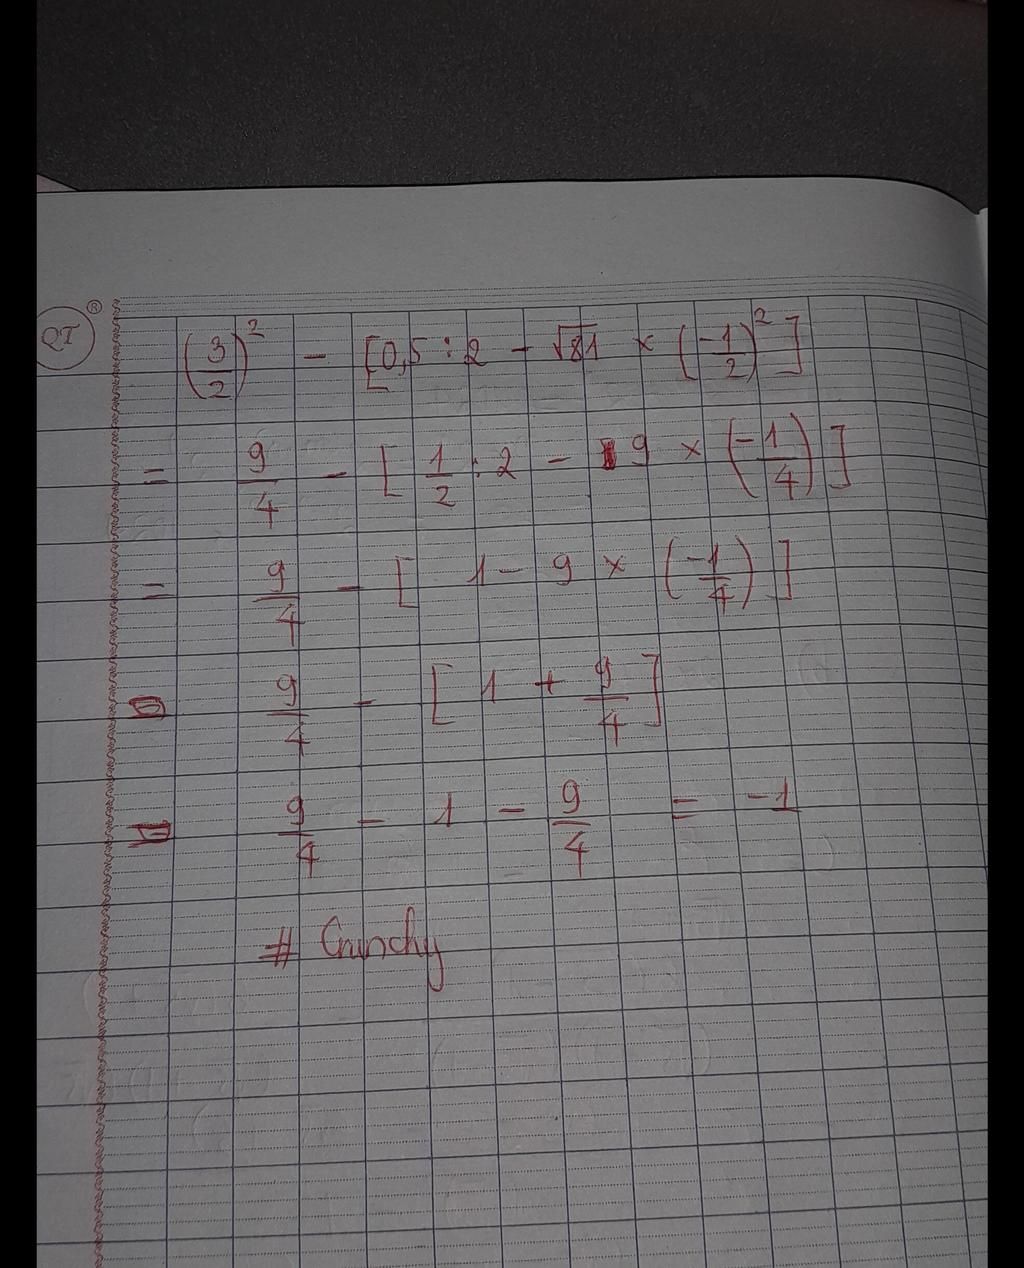 QT ®
(3/2)² - [0,5 : 2 - √81 × (-1/2)²]
= 9/4 - [1/2 : 2 - 9 × (-1/4)]
= 9/4 - [1 - 9 × (-1/4)]
= 9/4 - [1 + 9/4]
= 9/4 - 1 - 9/4 = -1
# Crunchy